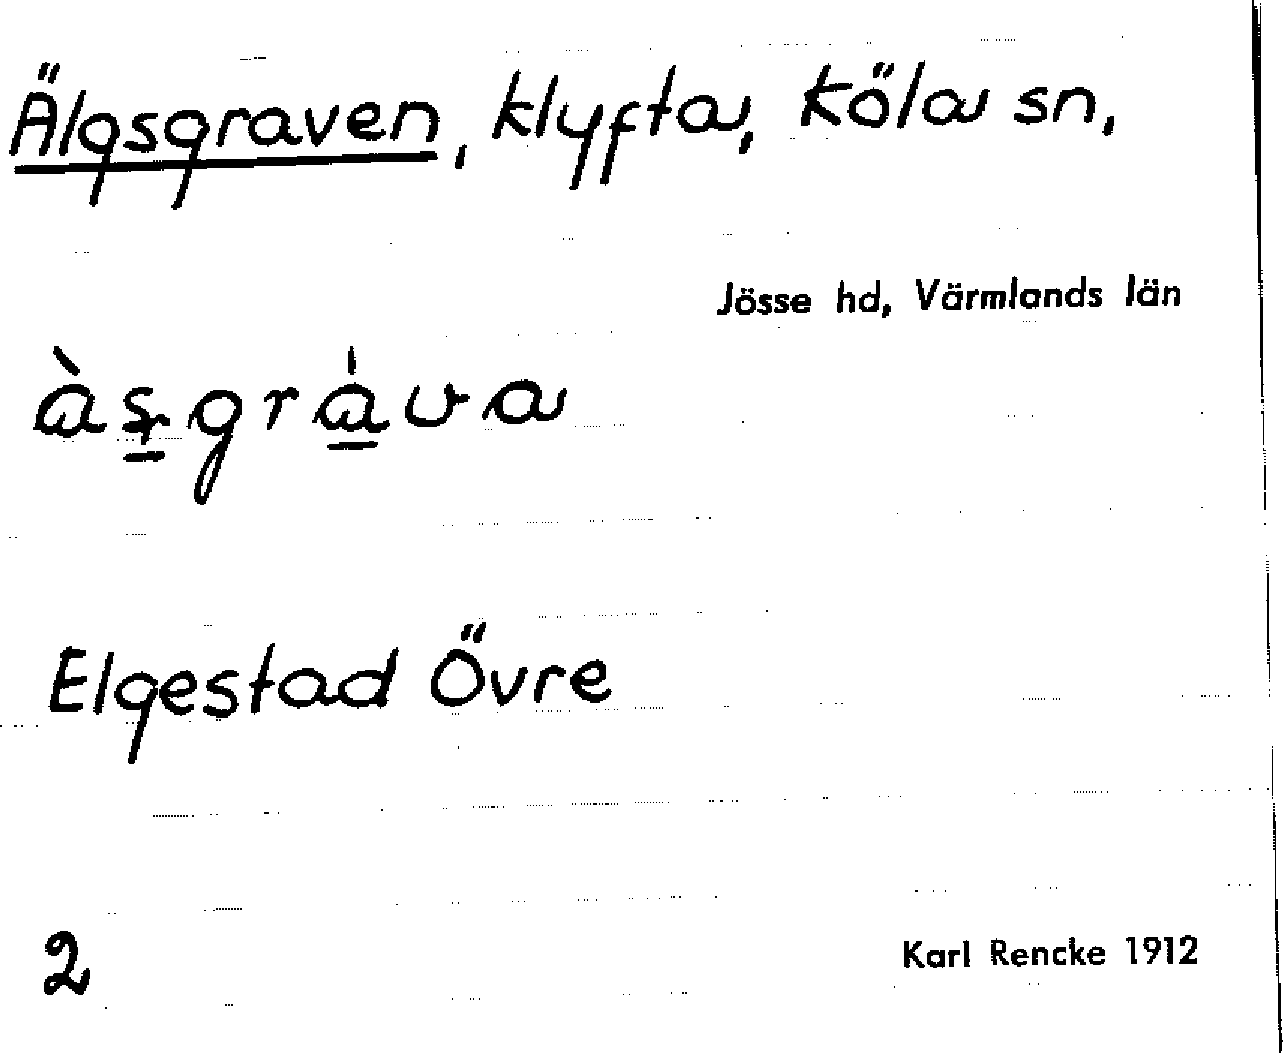 Älgsgraven, klyfta, Köla sn,
Jösse hd, Värmlands län
às̱grá̱va
Elgestad Övre
2
Karl Rencke 1912